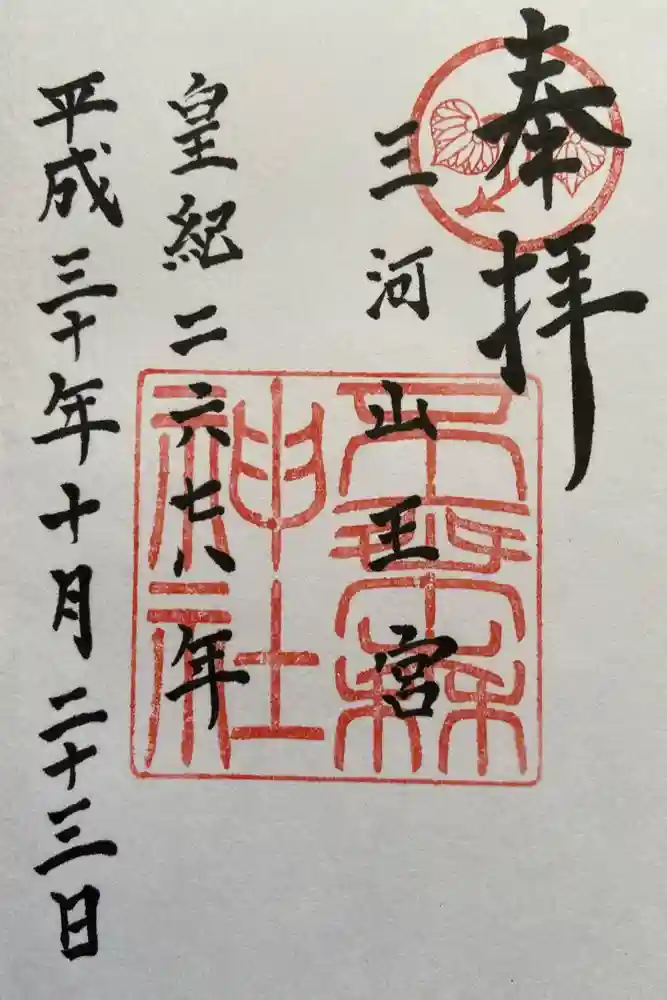 奉拝
三河
山王宮
皇紀二六七八年
平成三十年十月二十三日
神社